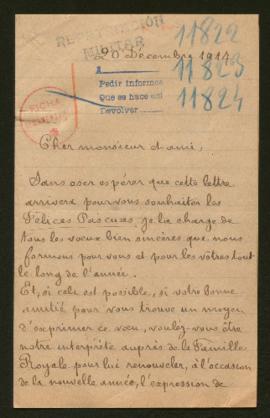 11822
Décembre 1914
11823
11824
A
Pedir informes
Que se hace así
Devolver
FICHA
Cher monsieur et ami,
Sans oser espérer que cette lettre
arrivera pour vous souhaiter les
Félices Pascuas, je la charge de
tous les vœux bien sincères que nous
formons pour vous et pour les vôtres tout
le long de l'année.
Et, si cela est possible, si votre bonne
amitié pour vous trouve un moyen
d'exprimer ce vœu, voulez-vous être
notre interprète auprès de la Famille
Royale pour lui renouveler, à l'occasion
de la nouvelle année, l'expression de